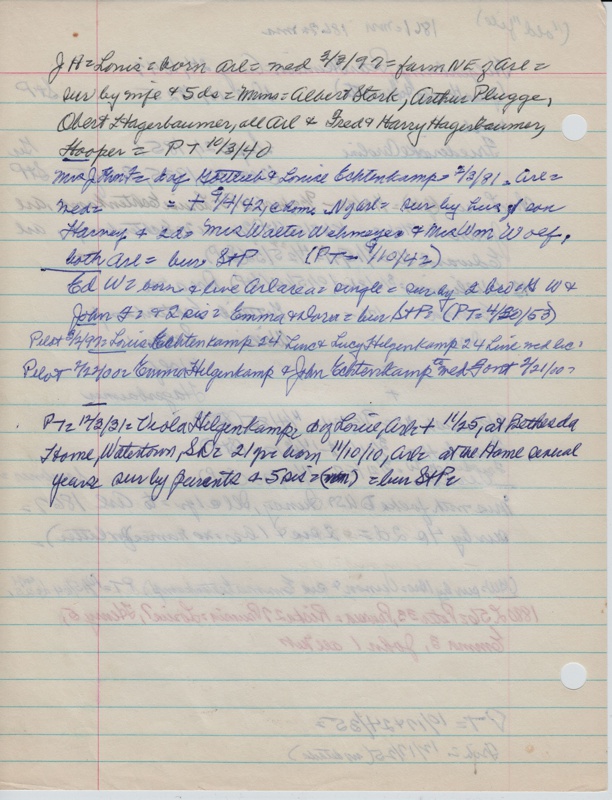 J H = Louis = born Arl = med 3/3/97 = farm NE of Arl =
sur by wife & 5 ds = Mmes = Albert Stork, Arthur Plugge,
Obert Hagerbaumer, all Arl & Fred & Harry Hagerbaumer,
Hooper = PT 10/3/40
Mrs John F = dag Gottlieb & Louise Echtenkamp = 2/3/81 = Arl =
med = = + 9/4/42, home N Arl = sur by hus, son
Harvey + 2 ds = Mrs Walter Wehmeyer & Mrs Wm Woef,
both Arl = bur StP (PT = 9/10/42)
Ed W = born & live Arl area = single = sur by 2 bro = G W &
John F = & 2 sis = Emma & Dora = bur StP = (PT = 4/30/53)
Pilot 3/4/97 = Louis Echtenkamp 24 Linc & Lucy Helgenkamp 24 Linc med lic =
Pilot 2/22/00 = Emma Helgenkamp & John Echtenkamp med Font 2/21/00 =
PT = 12/3/31 = Viola Hilgenkamp dag Louie, Arl = + 11/25, at Bethesda
Home, Watertown, = 21 yr = born 11/10/10, Arl = at the Home several
years sur by parents & 5 sis = (nm) = bur StP =